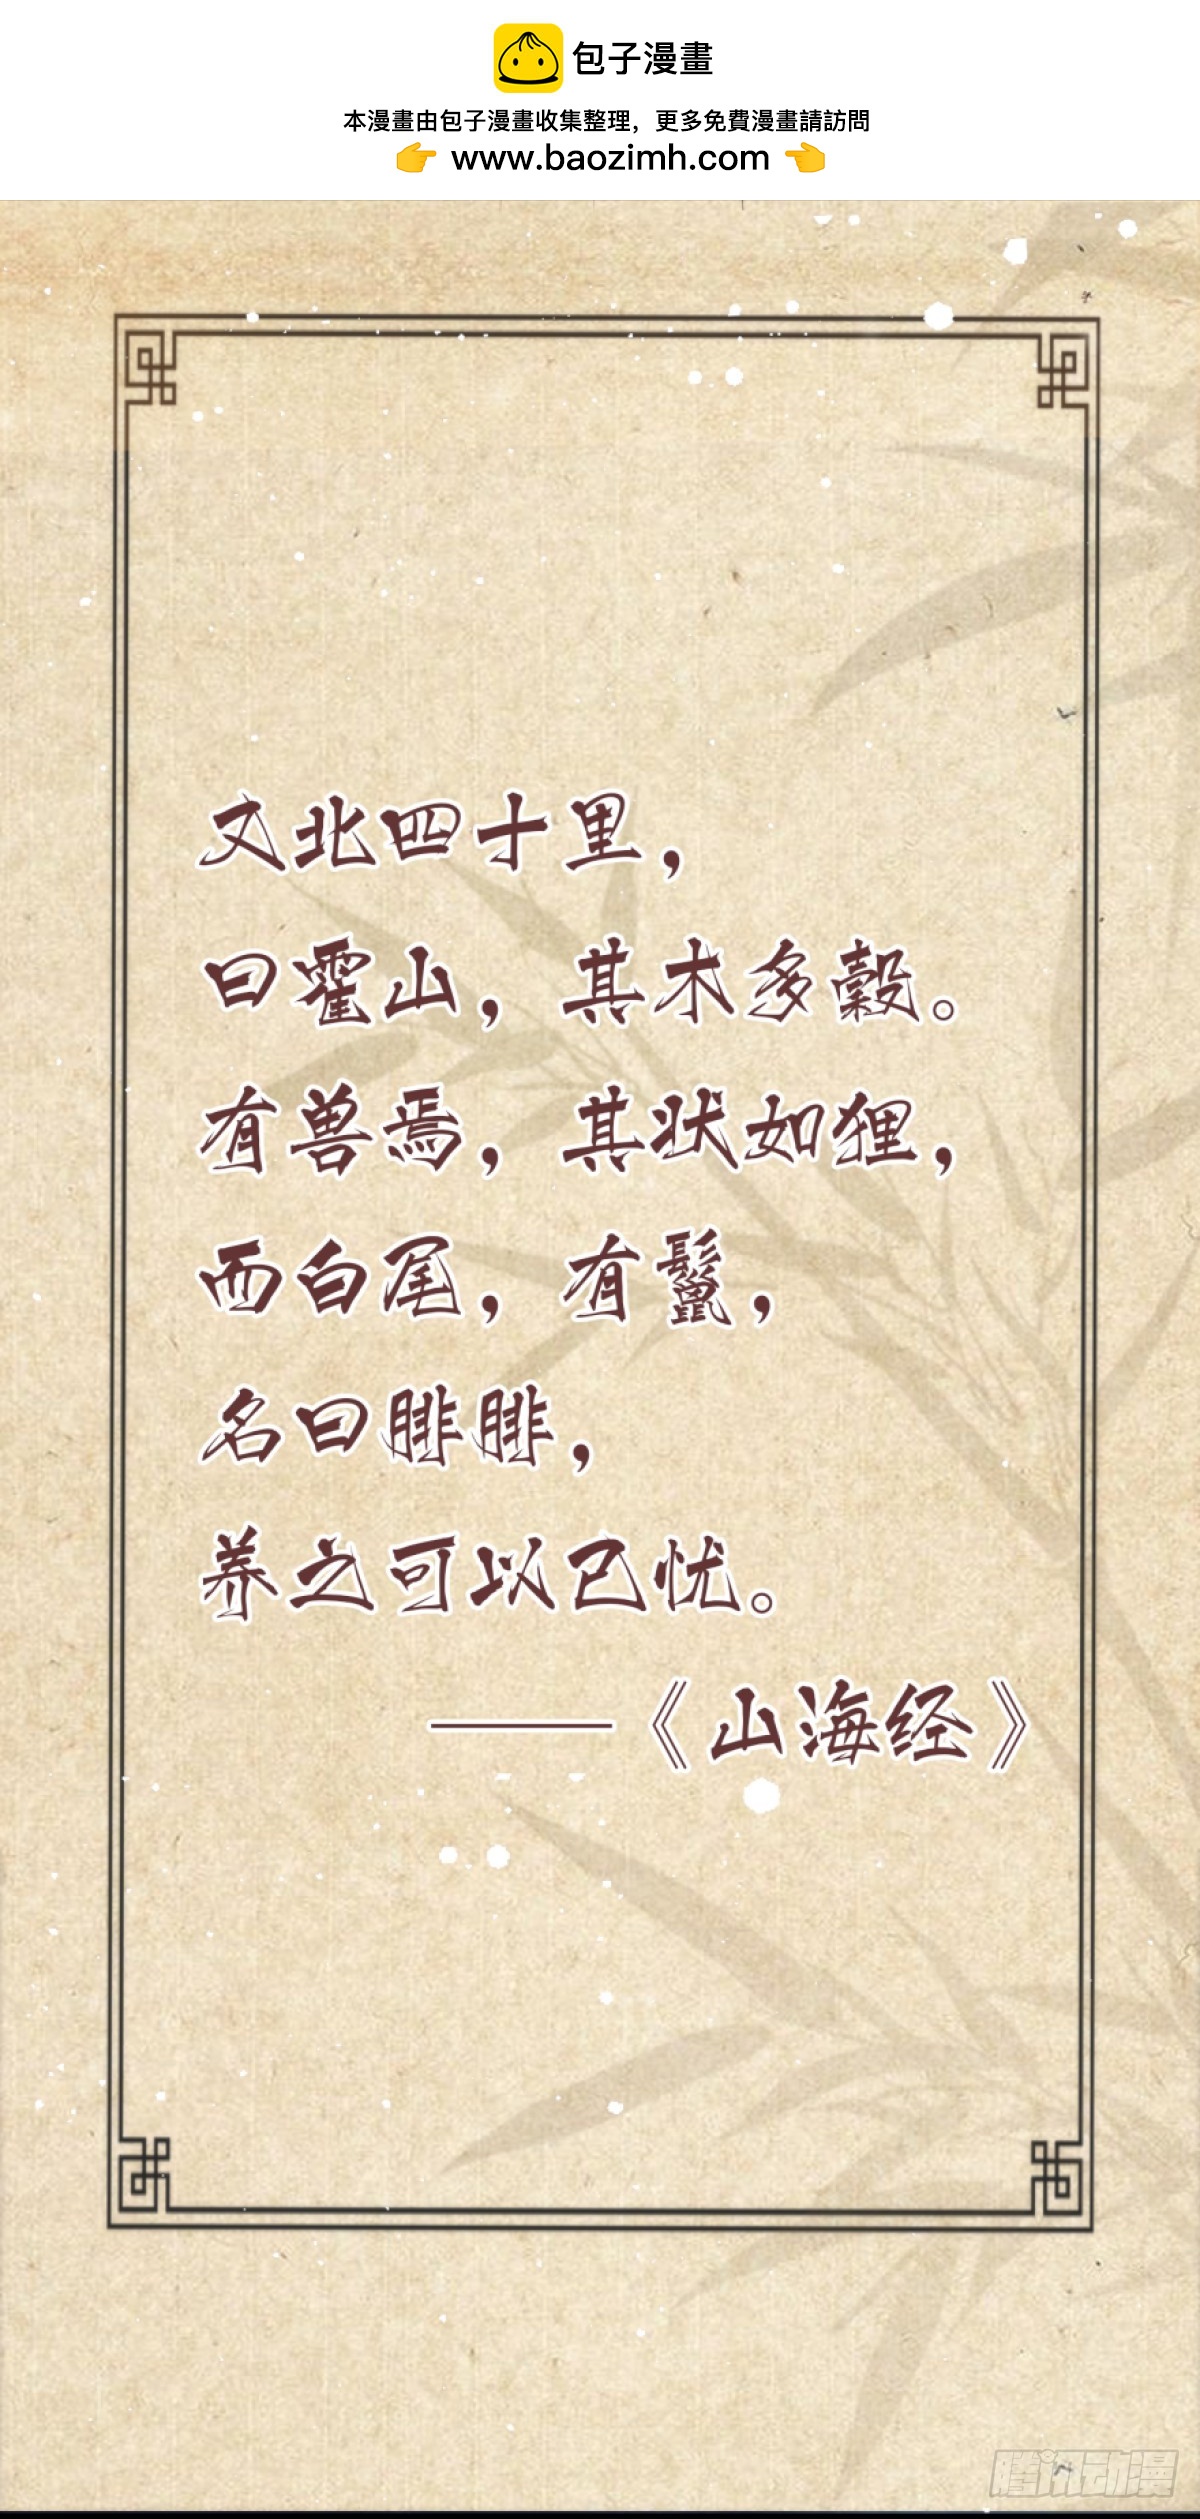 包子漫畫
本漫畫由包子漫畫收集整理，更多免費漫畫請訪問
👉 www.baozimh.com 👈
又北四十里，
曰霍山，其木多榖。
有兽焉，其状如狸，
而白尾，有鬣，
名曰腓腓，
养之可以已忧。
——《山海经》
腾讯动漫